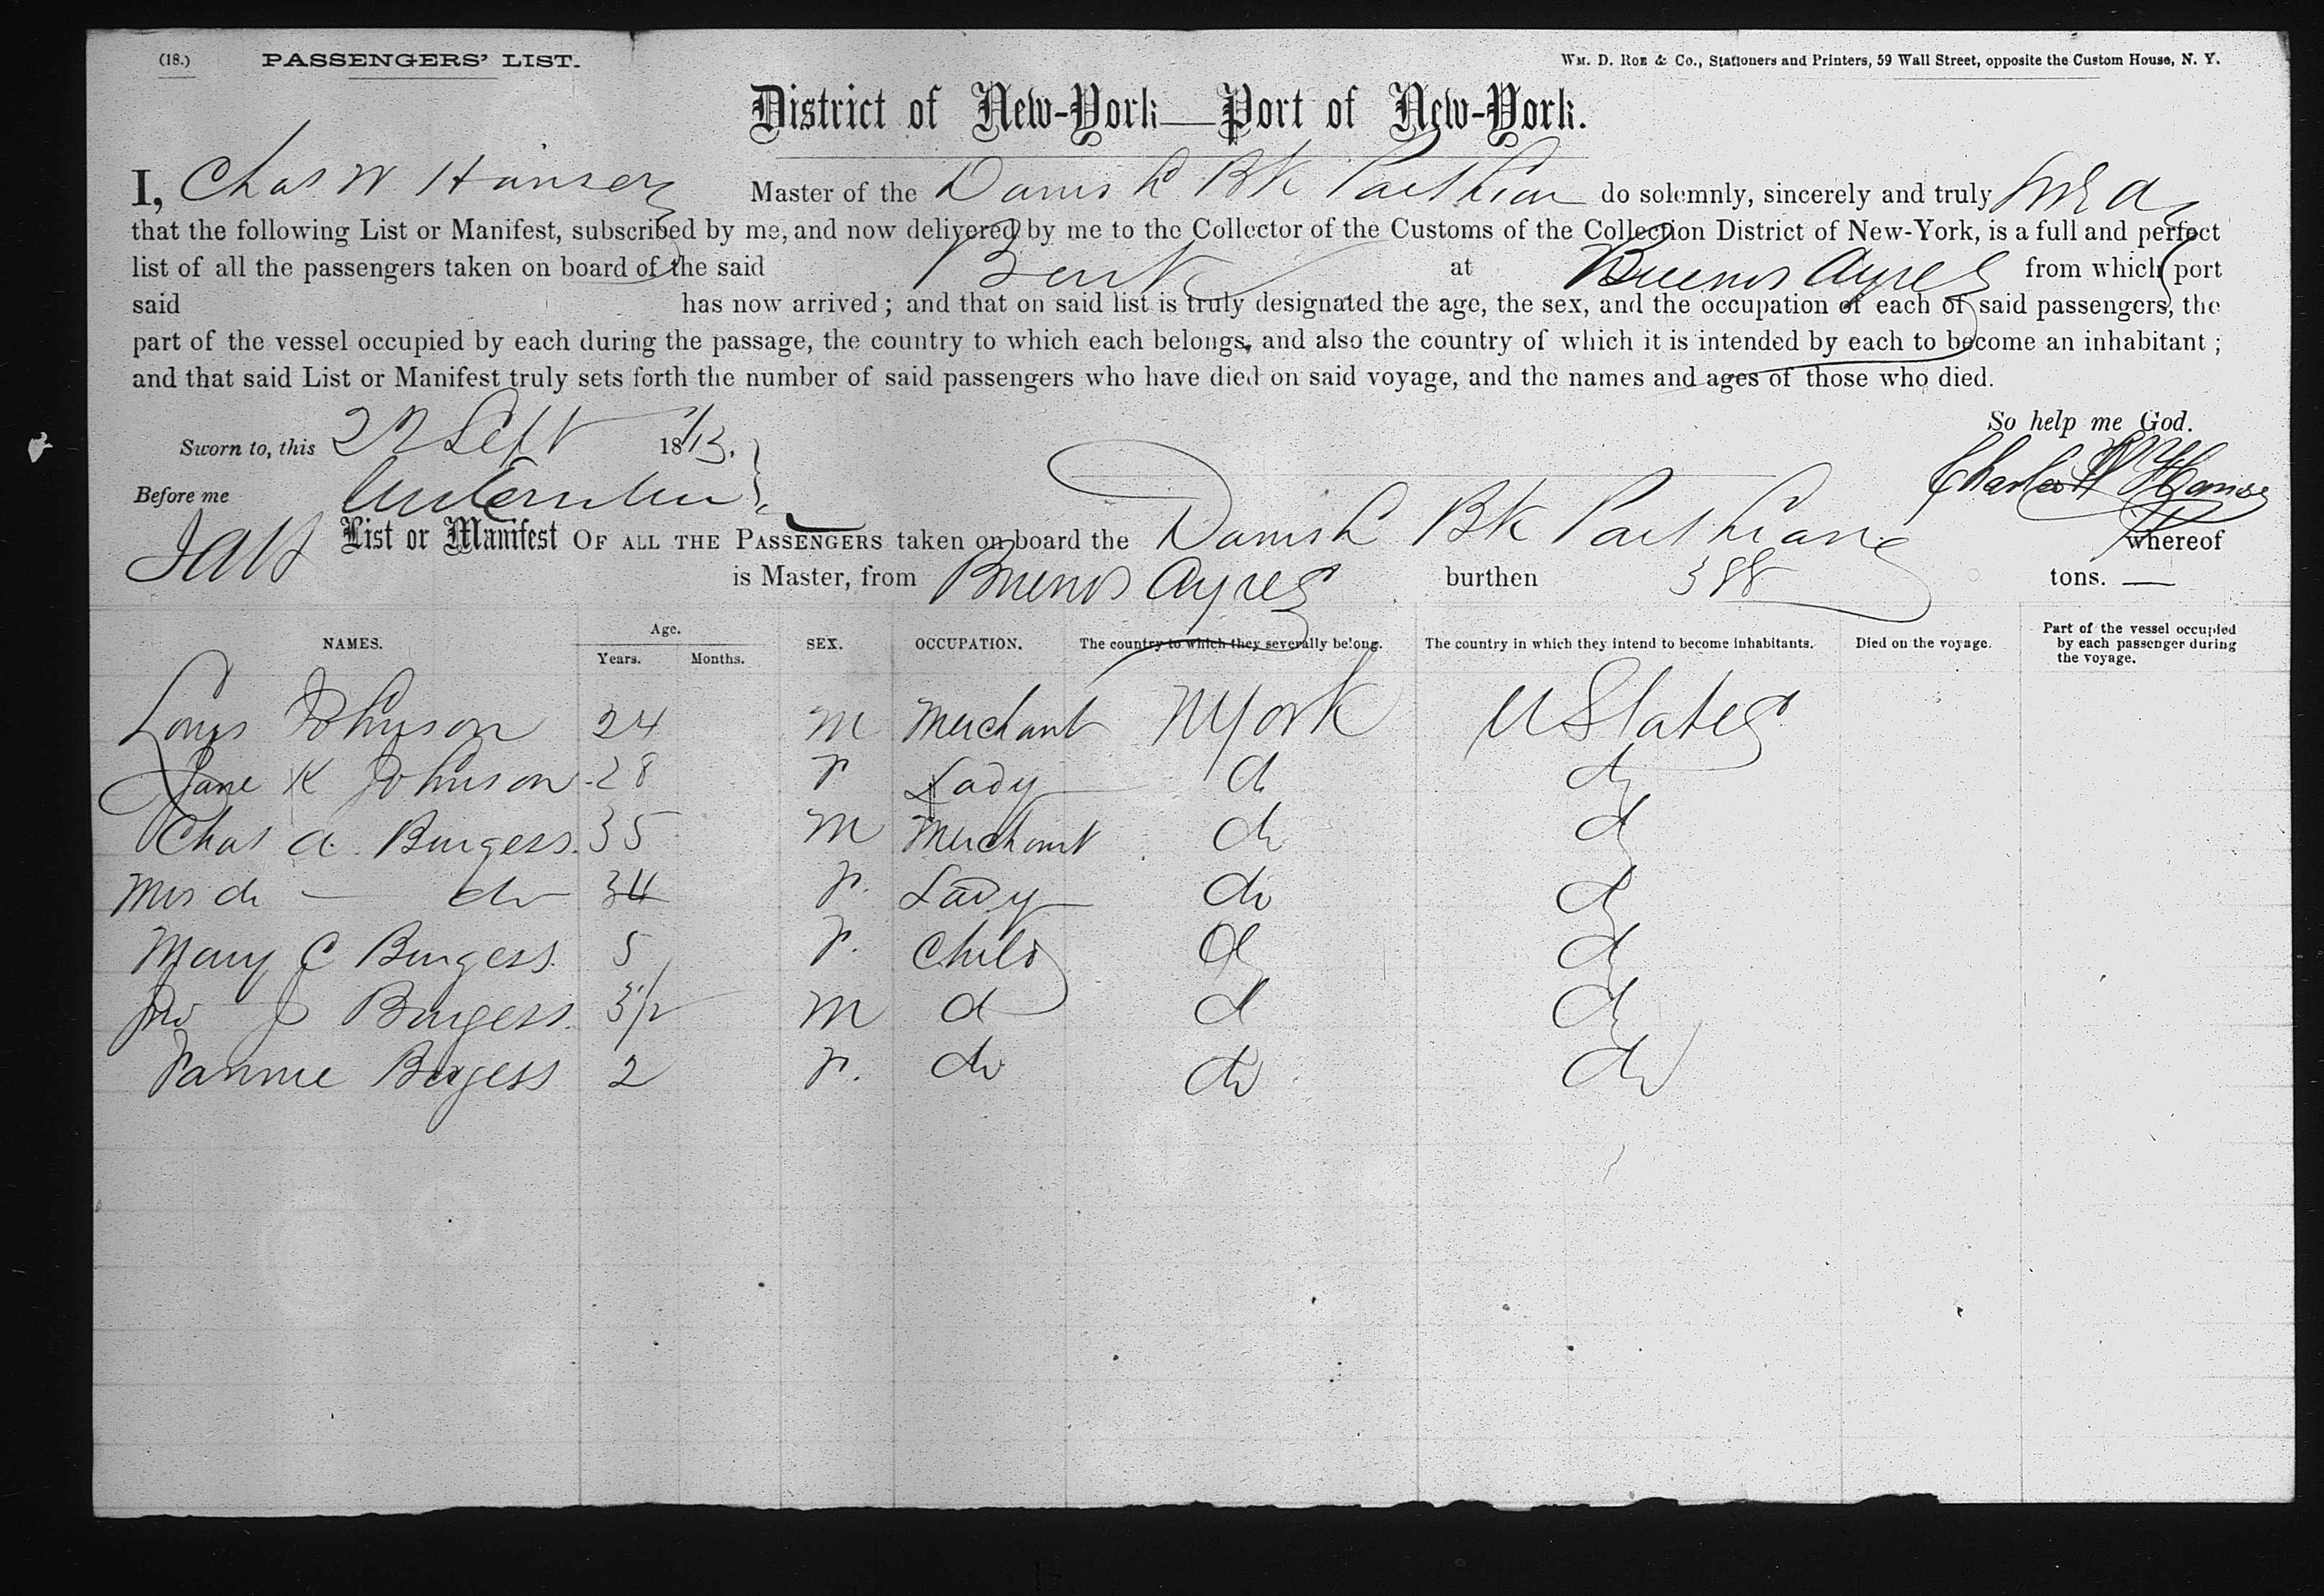 (18.) PASSENGERS' LIST. Wm. D. Roe & Co., Stationers and Printers, 59 Wall Street, opposite the Custom House, N. Y.
District of New-York—Port of New-York.
I, Chas W Hansen Master of the Danish Bk Parthian do solemnly, sincerely and truly
that the following List or Manifest, subscribed by me, and now delivered by me to the Collector of the Customs of the Collection District of New-York, is a full and perfect
list of all the passengers taken on board of the said Bark at Buenos Ayres from which port
said has now arrived; and that on said list is truly designated the age, the sex, and the occupation of each of said passengers, the
part of the vessel occupied by each during the passage, the country to which each belongs, and also the country of which it is intended by each to become an inhabitant;
and that said List or Manifest truly sets forth the number of said passengers who have died on said voyage, and the names and ages of those who died.
So help me God.
Sworn to, this 22 Sept 1873.
Before me
List or Manifest OF ALL THE PASSENGERS taken on board the Danish Bk Parthian whereof
is Master, from Buenos Ayres burthen 388 tons. —
NAMES. Age. Years. Months. SEX. OCCUPATION. The country to which they severally belong. The country in which they intend to become inhabitants. Died on the voyage. Part of the vessel occupied by each passenger during the voyage.
Louis Johnson 24 M Merchant N York U States
Jane K Johnson 28 F Lady do do
Chas A Burgess. 35 M Merchant do do
Mrs do — do 34 F. Lady do do
Mary C Burgess. 5 F. Child do do
J Burgess. 3 1/2 M do do do
Fannie Burgess 2 F. do do do